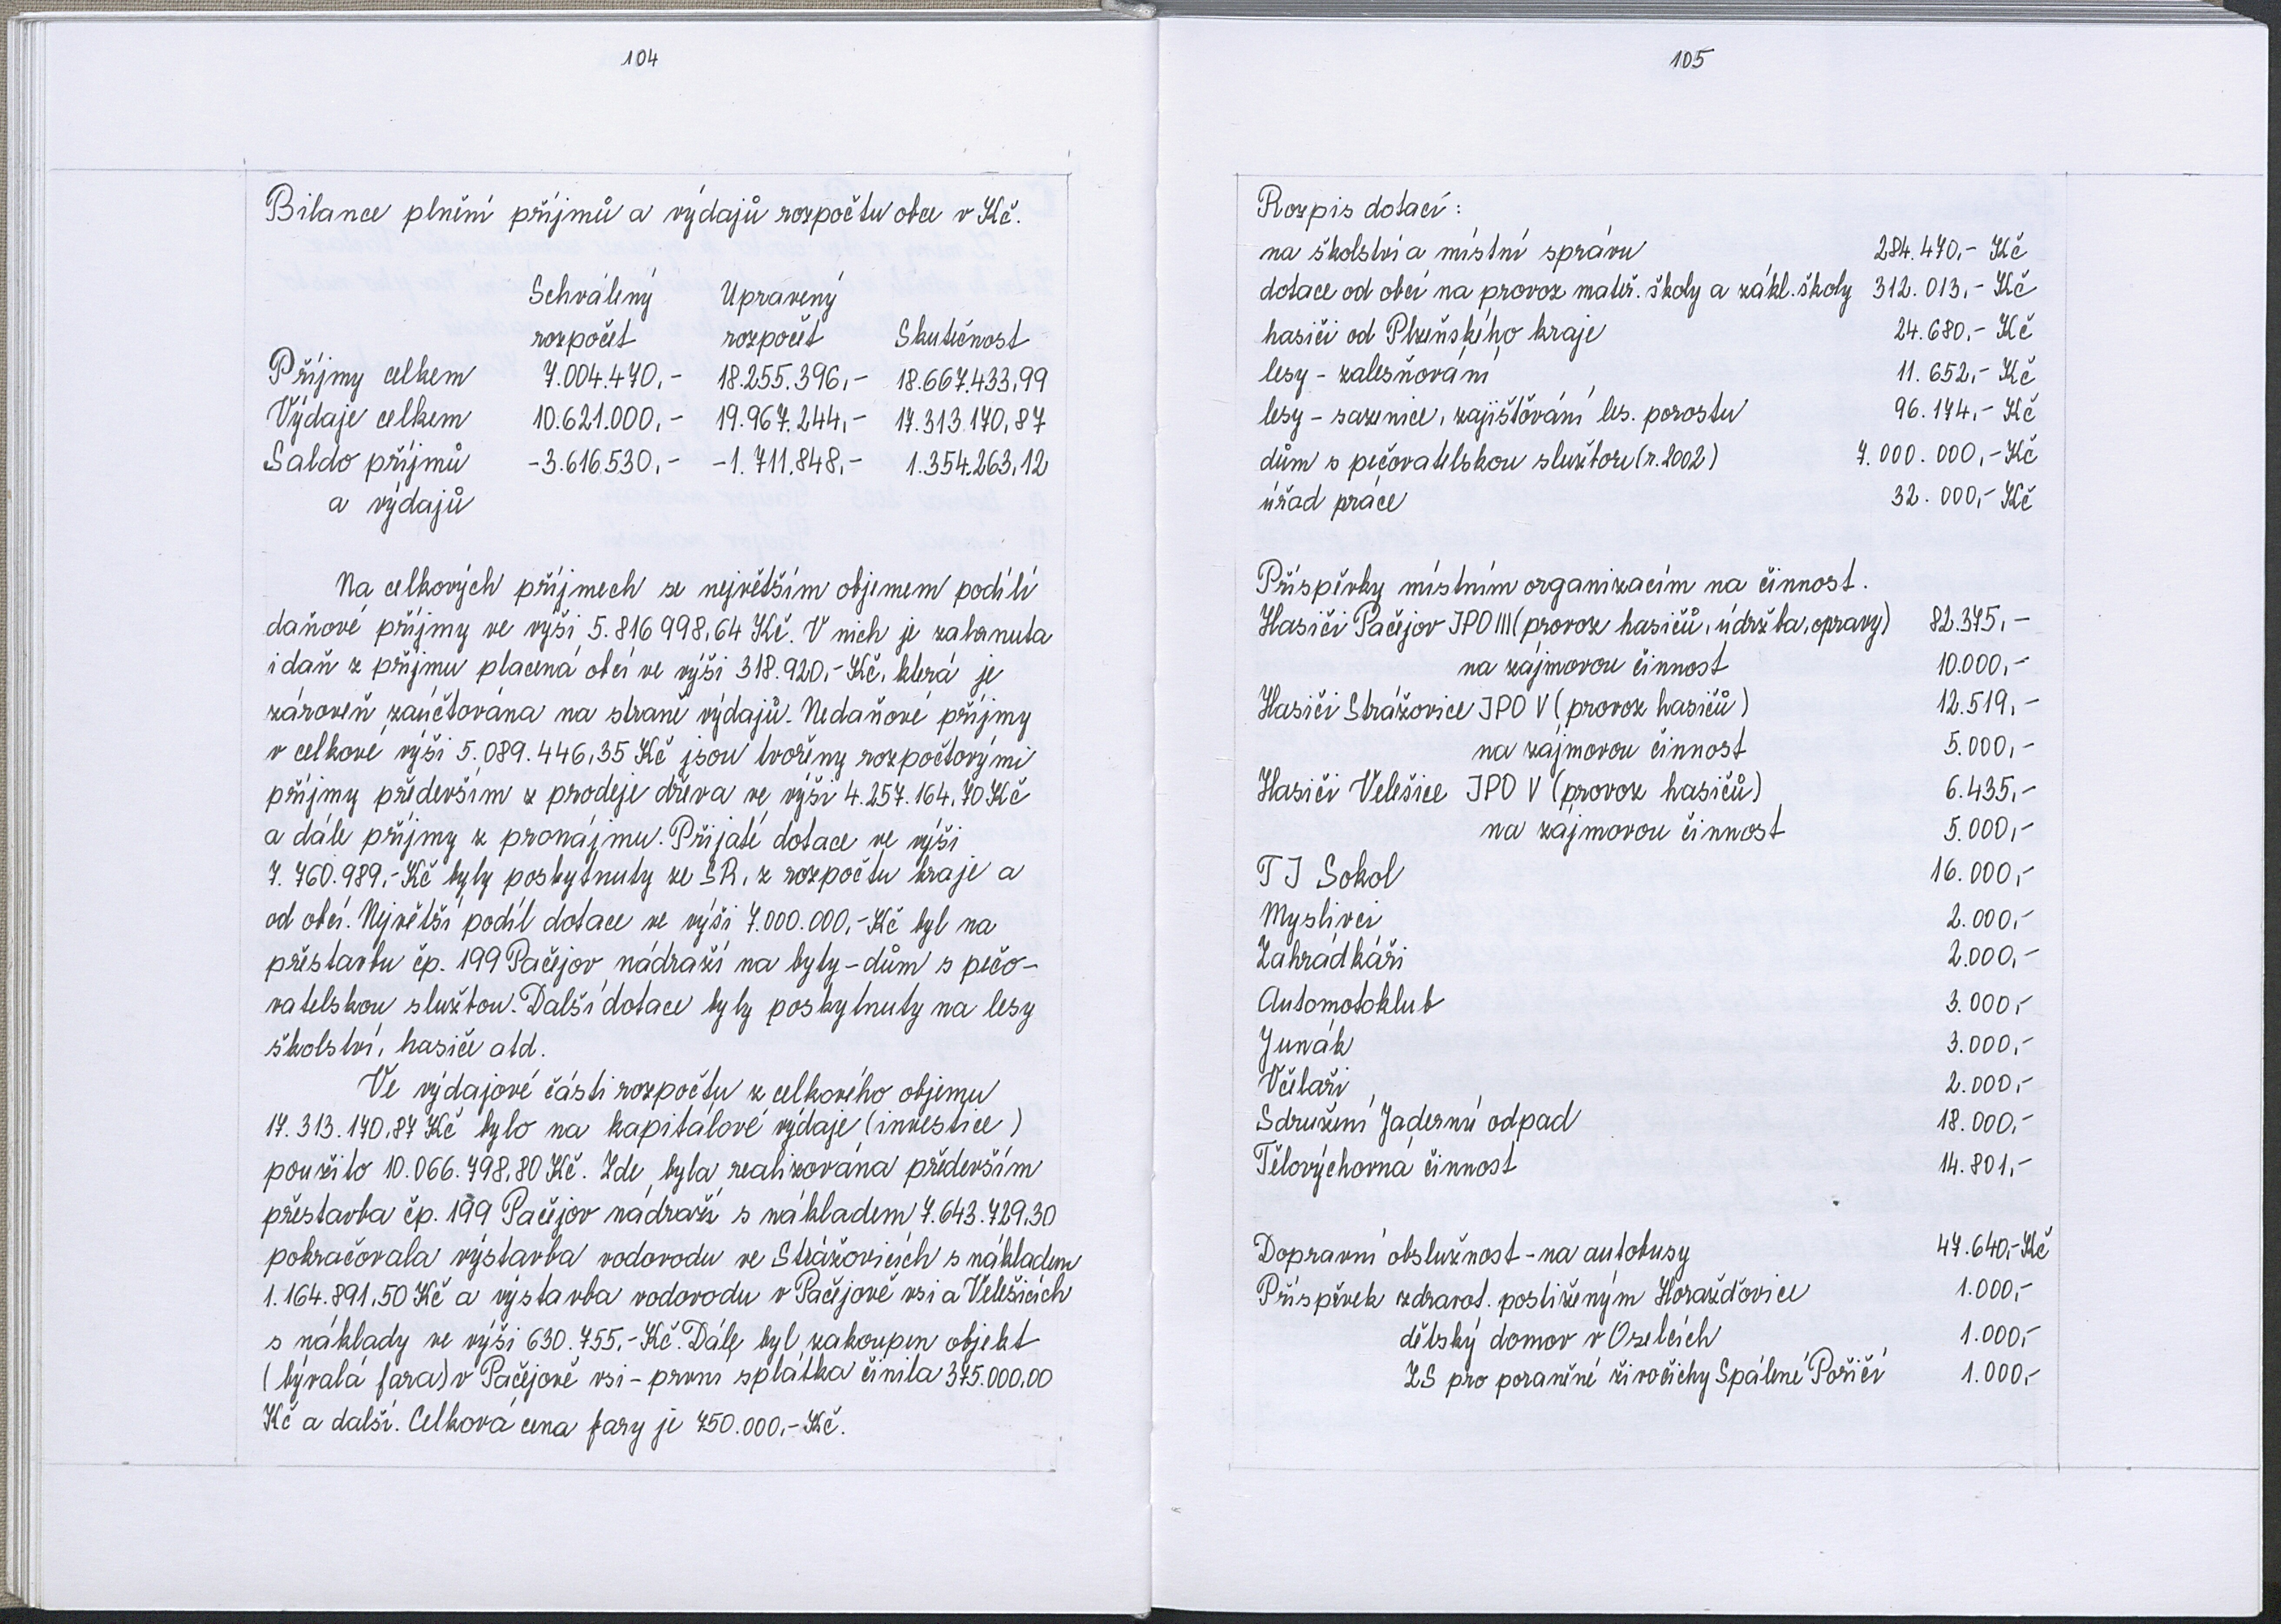 104
Bilance plnění příjmů a výdajů rozpočtu obce v Kč.
Schválený Upravený
rozpočet rozpočet Skutečnost
Příjmy celkem 7.004.470,- 18.255.396,- 18.667.433,99
Výdaje celkem 10.621.000,- 19.967.244,- 17.313.170,87
Saldo příjmů -3.616.530,- -1.711.848,- 1.354.263,12
a výdajů
Na celkových příjmech se největším objemem podílí
daňové příjmy ve výši 5.816 998,64 Kč. V nich je zahrnuta
i daň z příjmu placená obcí ve výši 318.920,- Kč, která je
zároveň zaúčtována na straně výdajů. Nedaňové příjmy
v celkové výši 5.089.446,35 Kč jsou tvořeny rozpočtovými
příjmy především z prodeje dřeva ve výši 4.257.164,70 Kč
a dále příjmy z pronájmu. Přijaté dotace ve výši
7.760.989,- Kč byly poskytnuty ze SR, z rozpočtu kraje a
od obcí. Největší podíl dotace ve výši 7.000.000,- Kč byl na
přestavbu čp. 199 Pačejov nádraží na byty - dům s pečo-
vatelskou službou. Další dotace byly poskytnuty na lesy
školství, hasiče atd.
Ve výdajové části rozpočtu z celkového objemu
17.313.170,87 Kč bylo na kapitálové výdaje (investice)
použito 10.066.798,80 Kč. Zde byla realizována především
přestavba čp. 199 Pačejov nádraží s nákladem 7.643.729,30
pokračovala výstavba vodovodu ve Strážovicích s nákladem
1.164.891,50 Kč a výstavba vodovodu v Pačejově vsi a Velešicích
s náklady ve výši 630.755,- Kč. Dále byl zakoupen objekt
(bývalá fara) v Pačejově vsi - první splátka činila 375.000,00
Kč a další. Celková cena fary je 750.000,- Kč.
105
Rozpis dotací:
na školství a místní správu 284.470,- Kč
dotace od obcí na provoz mateř. školy a zákl. školy 312.013,- Kč
hasiči od Plzeňského kraje 24.680,- Kč
lesy - zalesňování 11.652,- Kč
lesy - sazenice, zajišťování les. porostu 96.174,- Kč
dům s pečovatelskou službou (r. 2002) 7.000.000,- Kč
úřad práce 32.000,- Kč
Příspěvky místním organizacím na činnost.
Hasiči Pačejov JPO III (provoz hasičů, údržba, opravy) 82.375,-
na zájmovou činnost 10.000,-
Hasiči Strážovice JPO V (provoz hasičů) 12.519,-
na zájmovou činnost 5.000,-
Hasiči Velešice JPO V (provoz hasičů) 6.435,-
na zájmovou činnost 5.000,-
TJ Sokol 16.000,-
Myslivci 2.000,-
Zahrádkáři 2.000,-
Automotoklub 3.000,-
Junák 3.000,-
Včelaři 2.000,-
Sdružení Jaderný odpad 18.000,-
Tělovýchovná činnost 14.801,-
Dopravní obslužnost - na autobusy 47.640,- Kč
Příspěvek zdravot. postiženým Horažďovice 1.000,-
dětský domov v Oselcích 1.000,-
ZS pro poraněné živočichy Spálené Poříčí 1.000,-